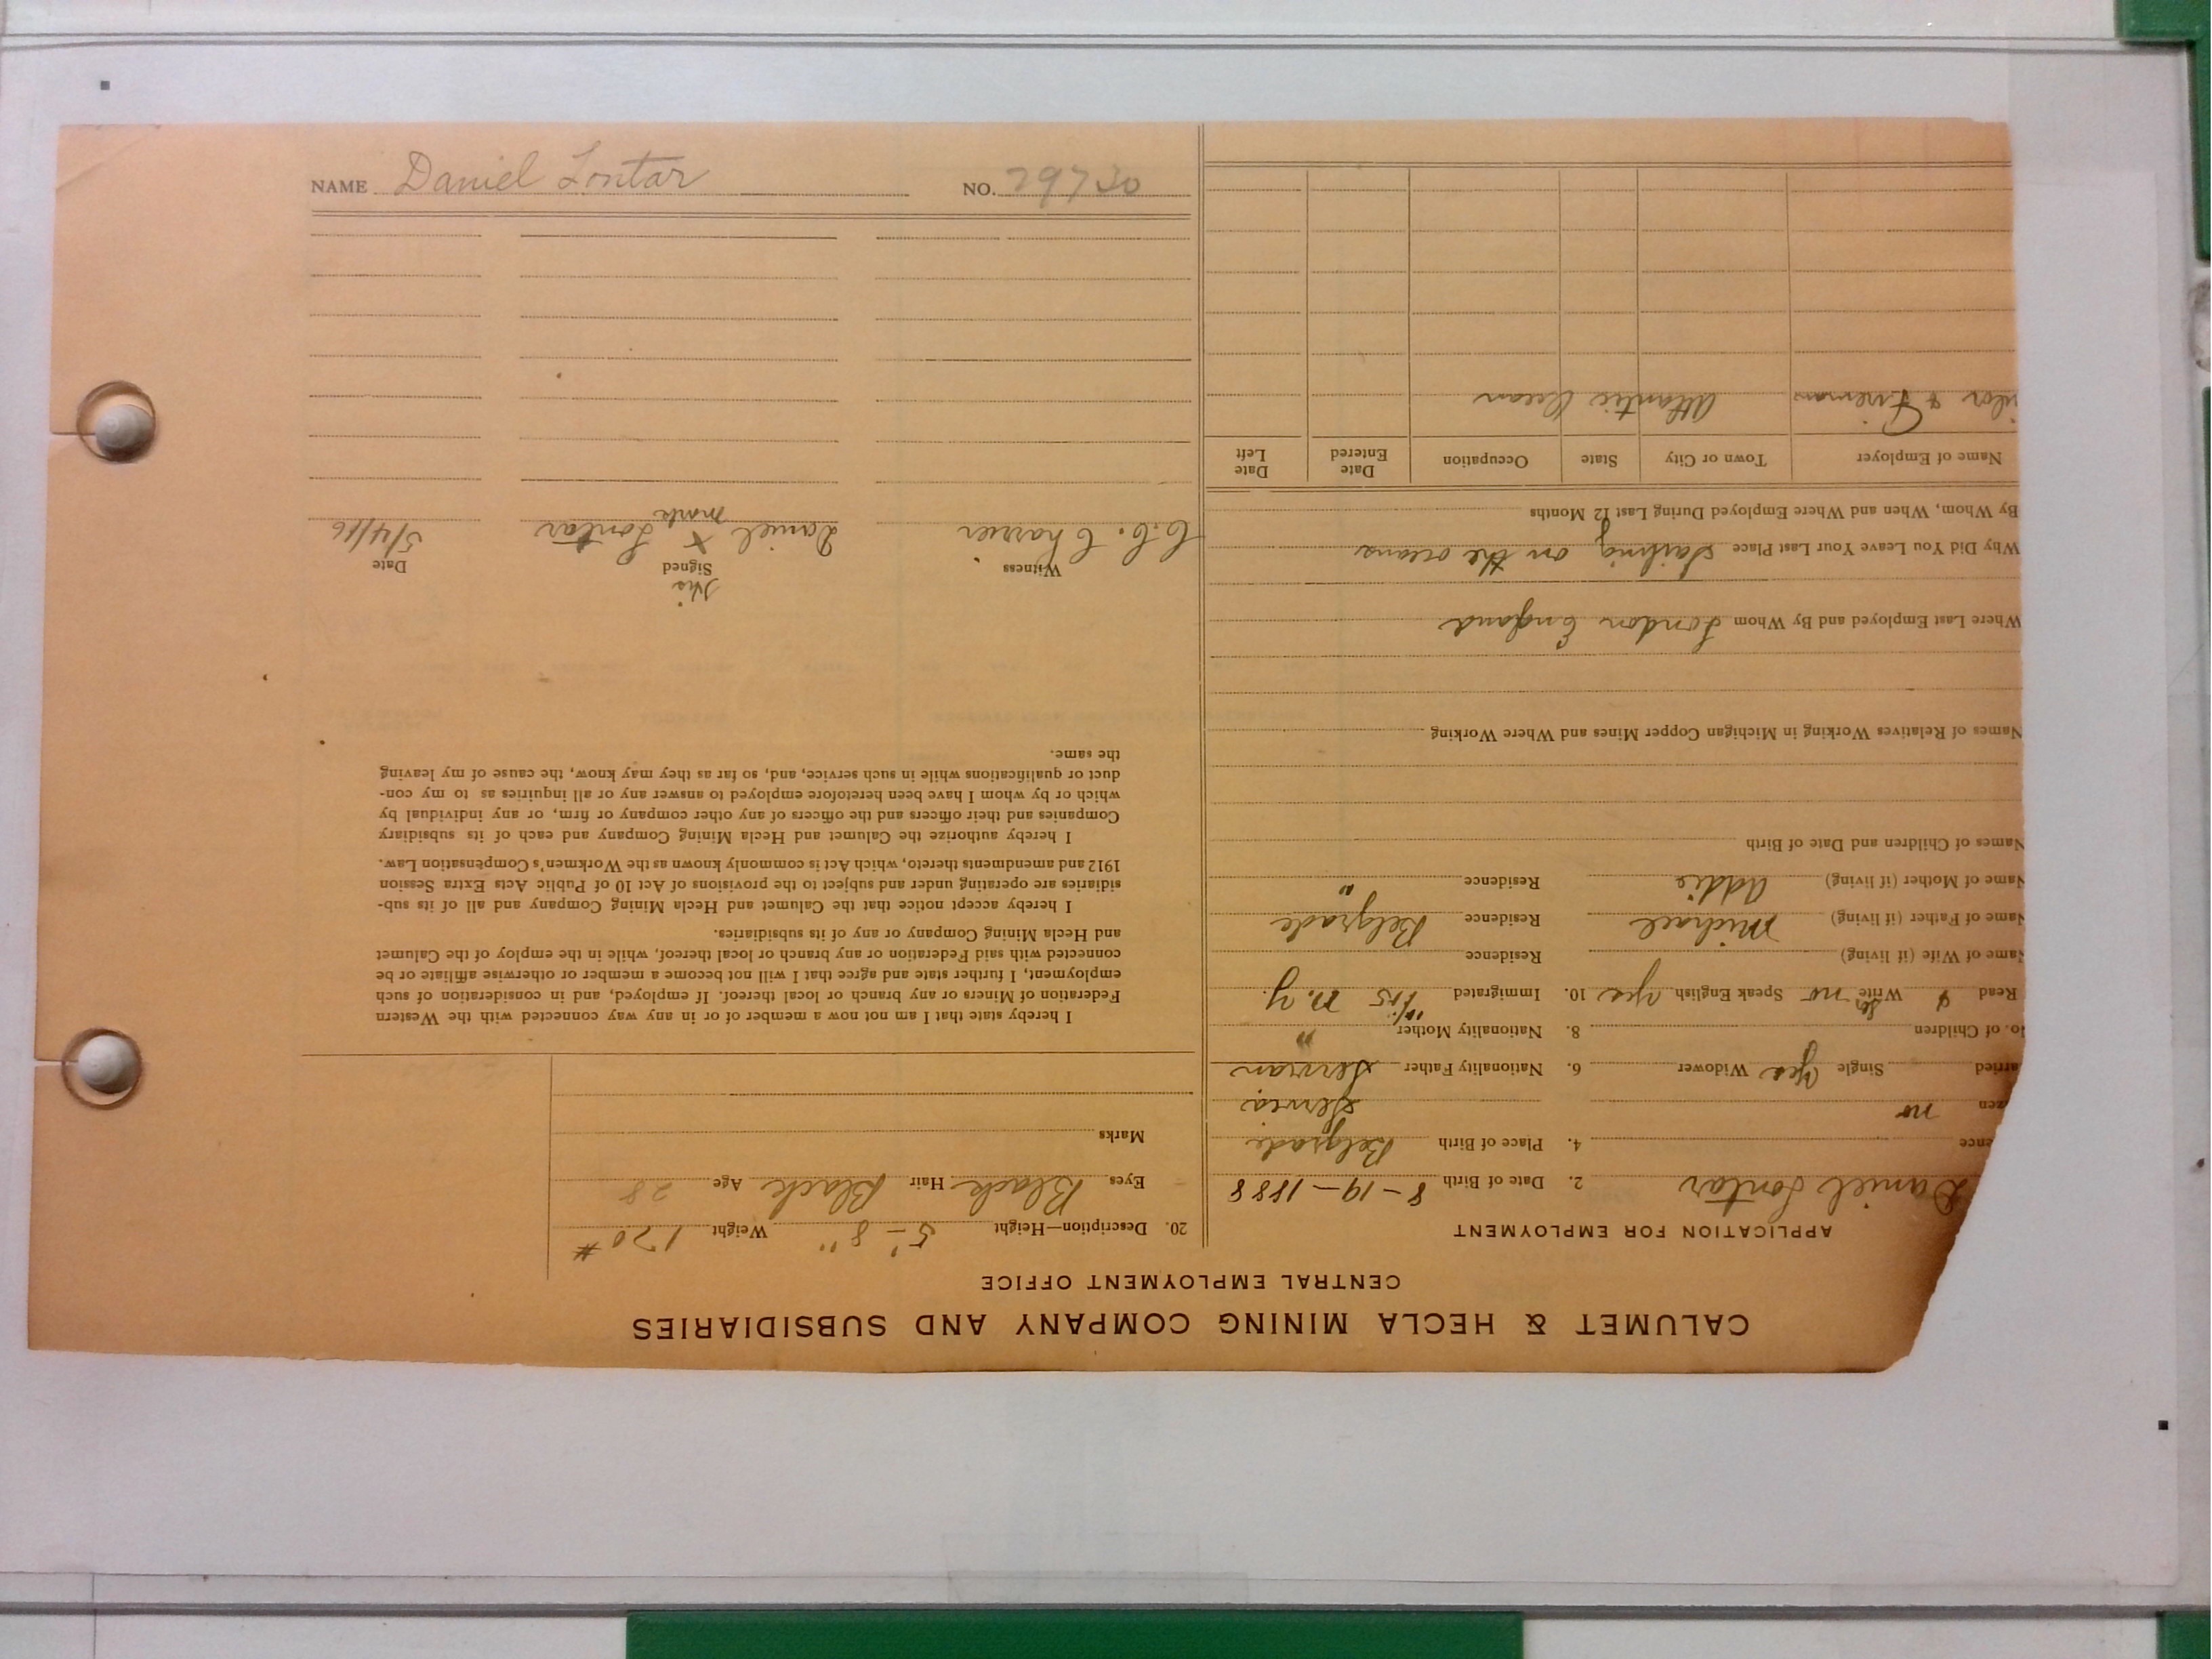 NAME Daniel Lontar NO. 29730
CALUMET & HECLA MINING COMPANY AND SUBSIDIARIES
CENTRAL EMPLOYMENT OFFICE
APPLICATION FOR EMPLOYMENT
Daniel Lontar 2. Date of Birth 8-19-1888
ence 4. Place of Birth Belgrade
zen no Servia
arried Single Yes Widower 6. Nationality Father Servian
No. of Children 8. Nationality Mother "
Read & Write no Speak English Yes 10. Immigrated N.Y.
Name of Wife (if living) Residence
Name of Father (if living) Michael Residence Belgrade
Name of Mother (if living) Addie Residence "
Names of Children and Date of Birth
Names of Relatives Working in Michigan Copper Mines and Where Working
Where Last Employed and By Whom London England
Why Did You Leave Your Last Place Sailing on the oceans
By Whom, When and Where Employed During Last 12 Months
Name of Employer Town or City State Occupation Date Entered Date Left
ilor & Fireman Atlantic Ocean
20. Description—Height 5'-8" Weight 170#
Eyes Black Hair Black Age 28
Marks
I hereby state that I am not now a member of or in any way connected with the Western
Federation of Miners or any branch or local thereof. If employed, and in consideration of such
employment, I further state and agree that I will not become a member or otherwise affiliate or be
connected with said Federation or any branch or local thereof, while in the employ of the Calumet
and Hecla Mining Company or any of its subsidiaries.
I hereby accept notice that the Calumet and Hecla Mining Company and all of its sub-
sidiaries are operating under and subject to the provisions of Act 10 of Public Acts Extra Session
1912 and amendments thereto, which Act is commonly known as the Workmen's Compensation Law.
I hereby authorize the Calumet and Hecla Mining Company and each of its subsidiary
Companies and their officers and the officers of any other company or firm, or any individual by
which or by whom I have been heretofore employed to answer any or all inquiries as to my con-
duct or qualifications while in such service, and, so far as they may know, the cause of my leaving
the same.
His
Witness Signed Date
C.C. Charrier Daniel X Lontar 5/4/16
mark